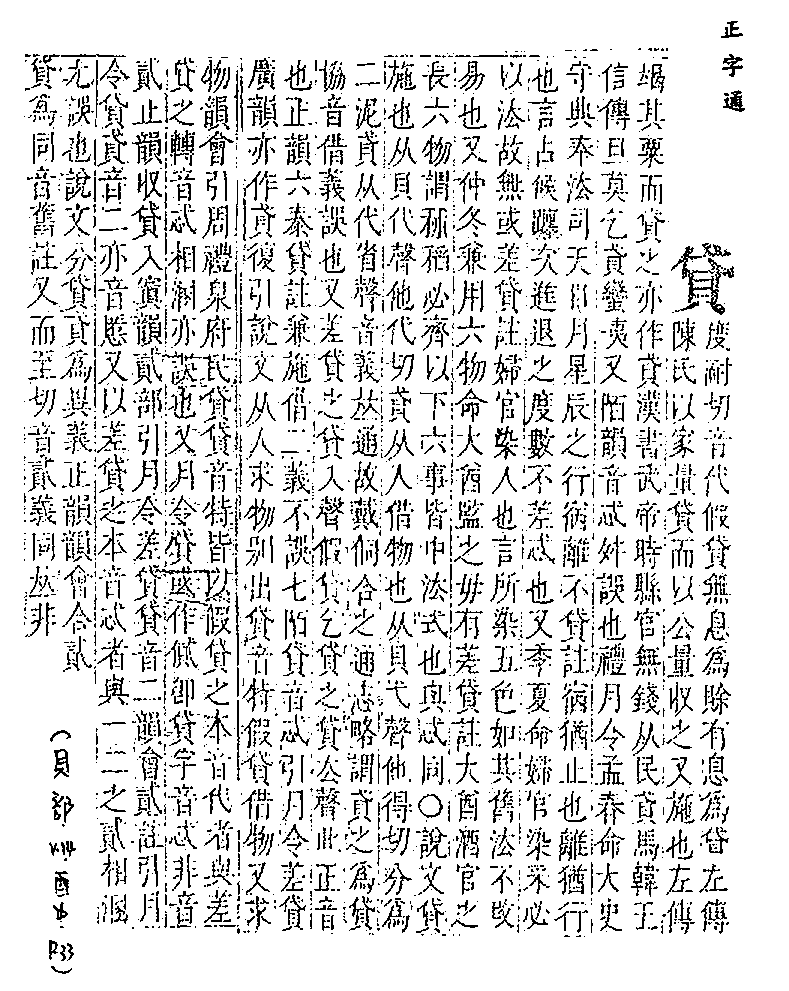 正字通
貸
度耐切音代假貸無息為賒有息為貸左傳
陳氏以家量貸而以公量收之又施也左傳
竭其粟而貸之亦作貣漢書武帝時縣官無錢从民貣馬韓王
信傳旦莫乞貣蠻夷又陌韻音忒𠀤誤也禮月令孟春命大史
守典奉法司天日月星辰之行宿離不貸註宿猶止也離猶行
也言占候躔次進退之度數不差忒也又季夏命婦官染采必
以法故無或差貸註婦官染人也言所染五色如其舊法不改
易也又仲冬兼用六物命大酋監之毋有差貸註大酋酒官之
長六物謂秫稻必齊以下六事皆中法式也與忒同○說文貸
施也从貝代聲他代切貣从人借物也从貝弋聲他得切分為
二泥貣从代省聲音義𠀤通故戴侗合之通志略謂貣之為貸
協音借義誤也又差貸之貸入聲假貸乞貸之貸去聲此正音
也正韻六泰貸註兼施借二義不誤七陌貸音忒引月令差貸
廣韻亦作貣復引說文从人求物別出貸音特假貸借物又求
物韻會引周禮泉府民貸貸音特皆以假貸之本音代者與差
貸之轉音忒相溷亦誤也又月令貸或作㒃卽貸字音忒非音
貳止韻收貸入寘韻貳部引月令差貸貸音二韻會貳註引月
令貸貸音二亦音慝又以差貸之本音忒者與一二之貳相溷
尤誤也說文分貸貣為異義正韻韻會合貳
貸為同音舊註又而至切音貳義同𠀤非
(貝部 酉中 P.33)